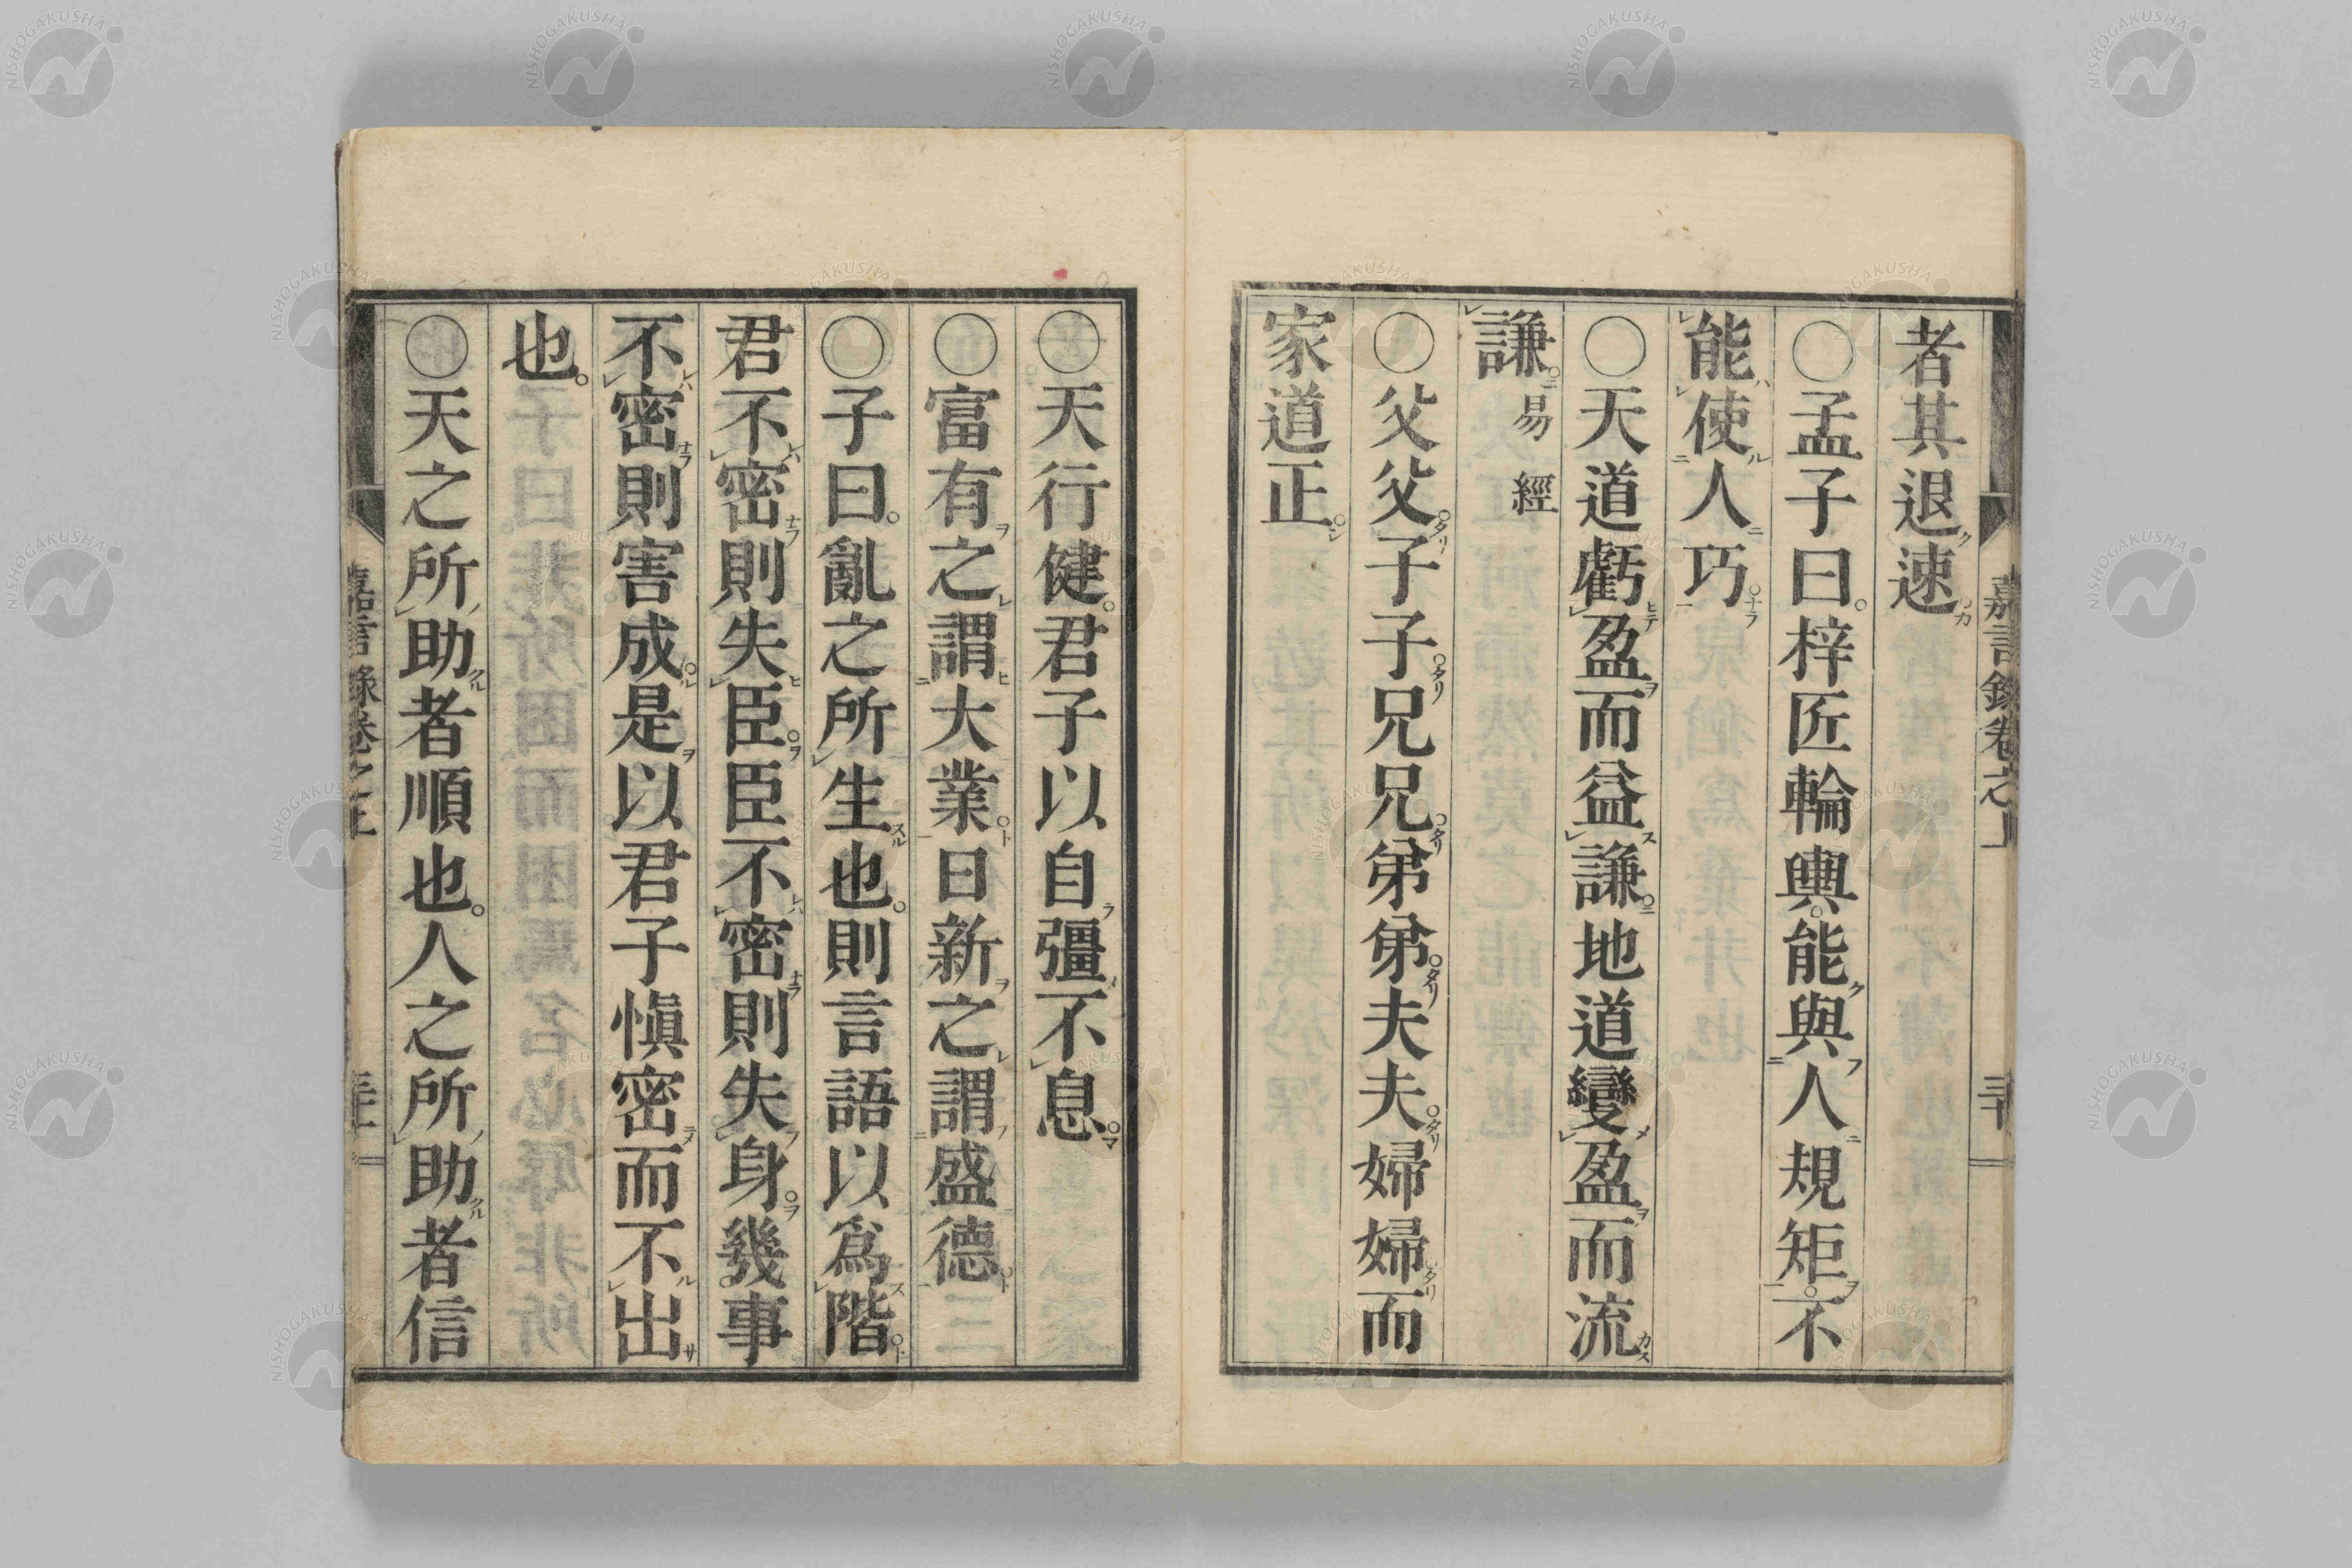 者其退速
○孟子曰梓匠輪輿能與人規矩不
能使人巧
○天道虧盈而益謙地道變盈而流
謙易經
○父父子子兄兄弟弟夫夫婦婦而
家道正
○天行健君子以自彊不息
○富有之謂大業日新之謂盛德
○子曰亂之所生也則言語以爲階
君不密則失臣臣不密則失身幾事
不密則害成是以君子愼密而不出
也
○天之所助者順也人之所助者信
嘉言錄卷之上
NISHOGAKUSHA